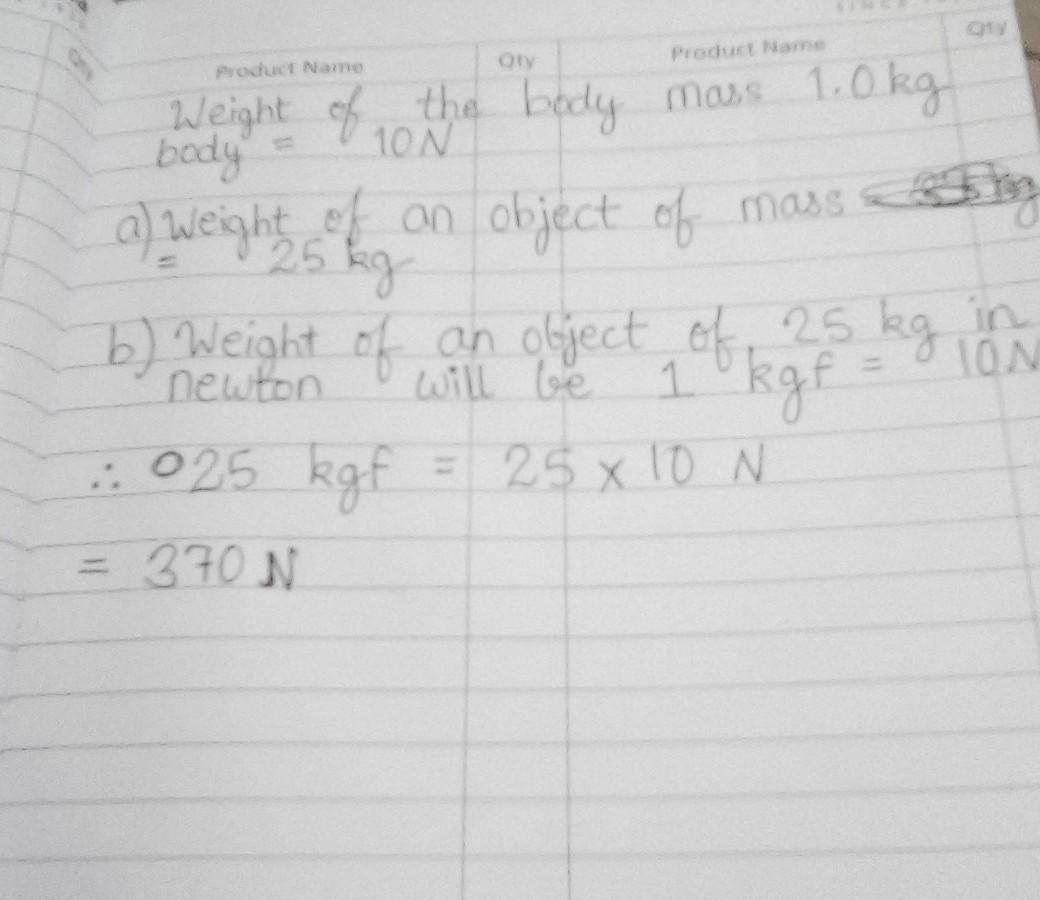 Product Name Qty Product Name Qty
Weight of the body mass 1.0 kg
body = 10N
a) Weight of an object of mass
= 25 kg
b) Weight of an object of 25 kg in
newton will be 1 kgf = 10N
∴ 025 kgf = 25 x 10 N
= 370 N